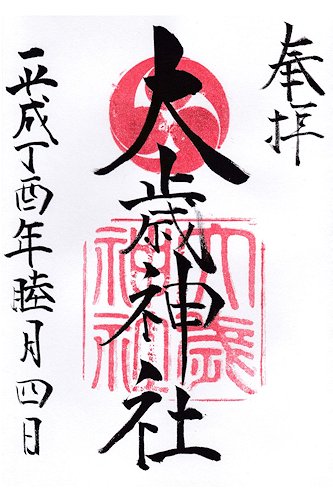 奉拝
大歳神社
大歳神社
平成丁酉年睦月四日